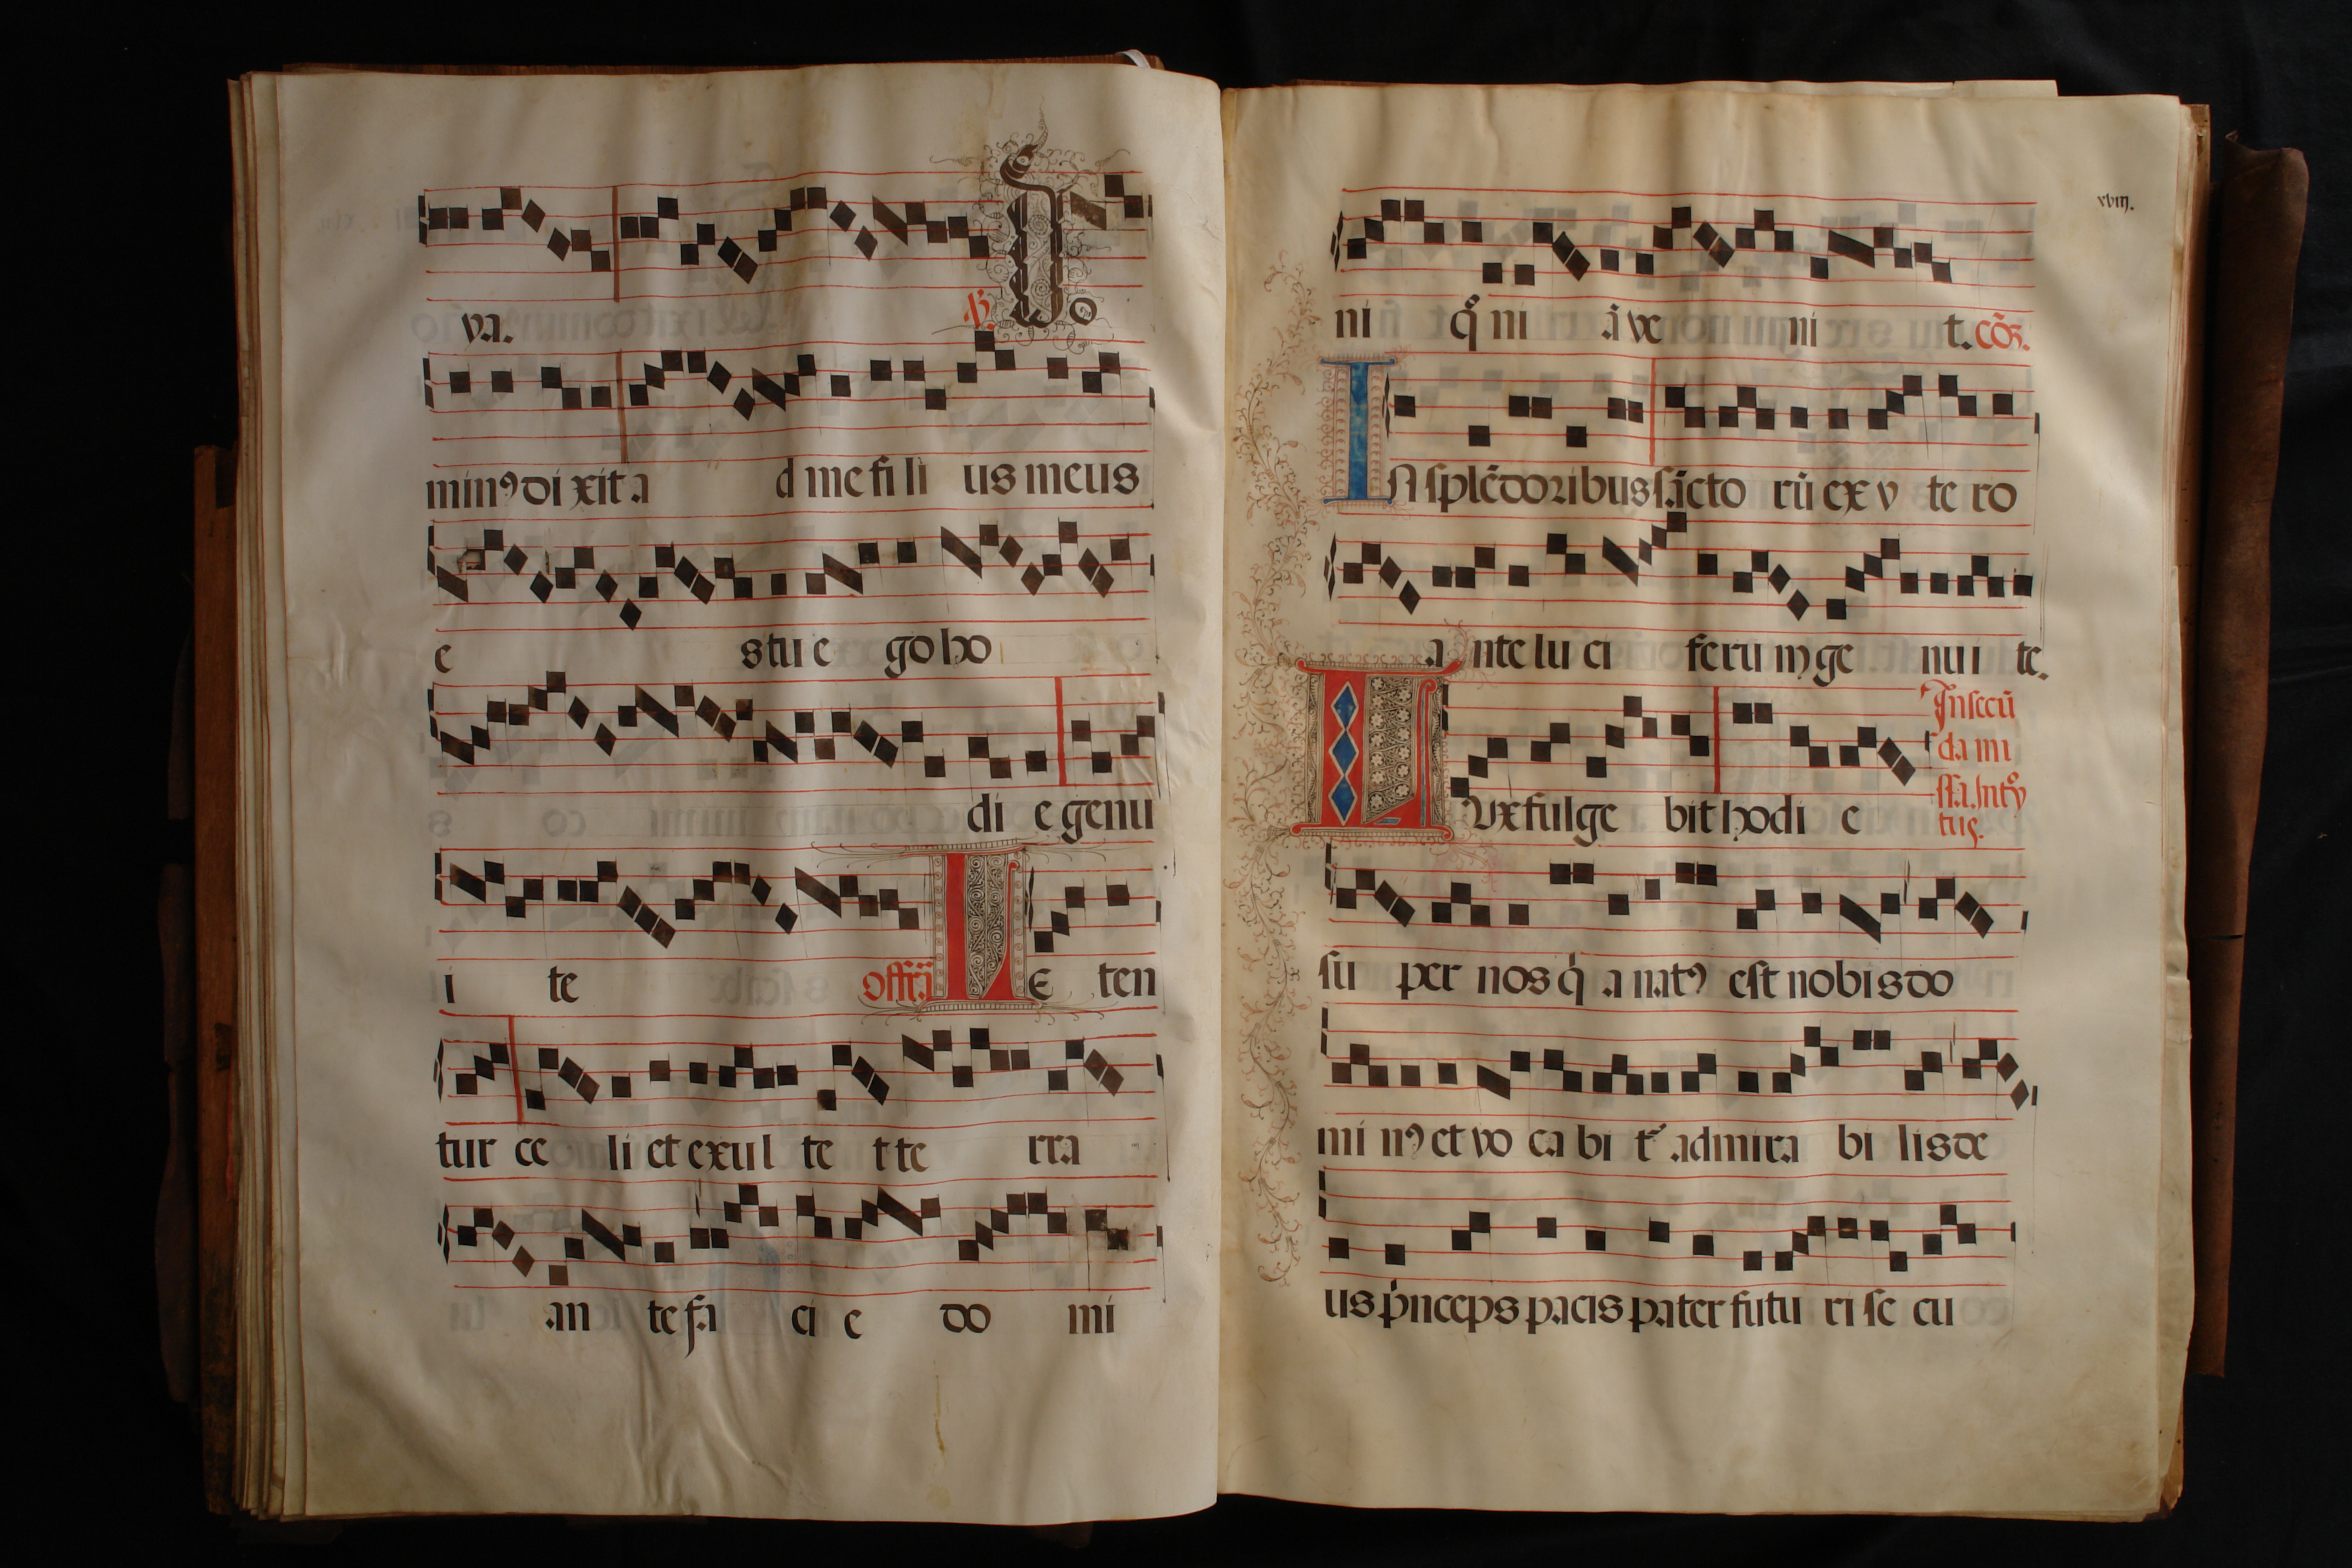 va. ℟. Do
minꝰ di xit a d me fi li us meus
e s tu e go ho
di e genu
i te offr̄a Le ten
tur ce li et exul te t te rra
an te fa ci e do mi
xviij.
ni qͦ ni ā ve ni t. cōz.
IN splēdoribus sācto rū ex v te ro
a nte lu ci feru m ge nu i te.
In secū
da mi
Lux fulge bit hodi e ssa. Intͦy
tus.
su per nos q̇ a natꝰ est nobis do
mi nꝰ et vo ca bi t᷑ admira bi lis de
us ṗnceps pacis pater futu ri se cu